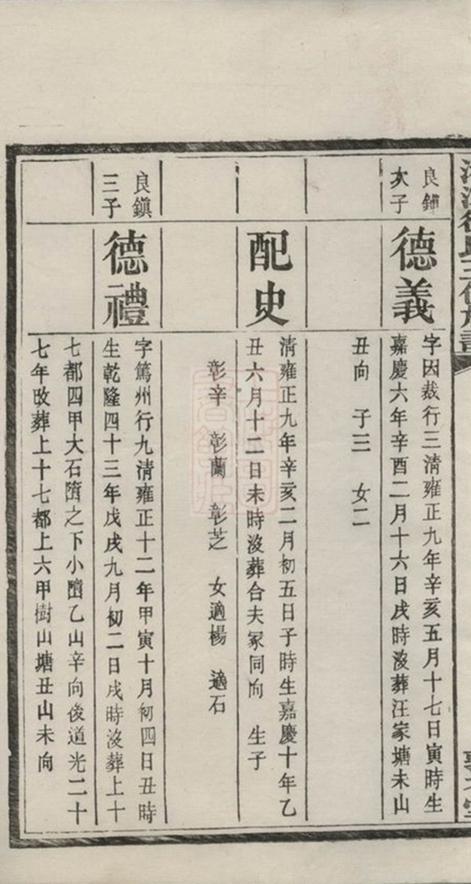 良鎛
次子
德義
字因裁行三清雍正九年辛亥五月十七日寅時生
嘉慶六年辛酉二月十六日戌時歿葬汪家塘未山
丑向 子三 女二
配史
清雍正九年辛亥二月初五日子時生嘉慶十年乙
丑六月十二日未時歿葬合夫冢同向 生子
彰辛 彰蘭 彰芝 女適楊 適石
良鎮
三子
德禮
字篤州行九清雍正十二年甲寅十月初四日丑時
生乾隆四十三年戊戌九月初二日戌時歿葬上十
七都四甲大石磖之下小磖乙山辛向後道光二十
七年改葬上十七都上六甲樹山塘丑山未向